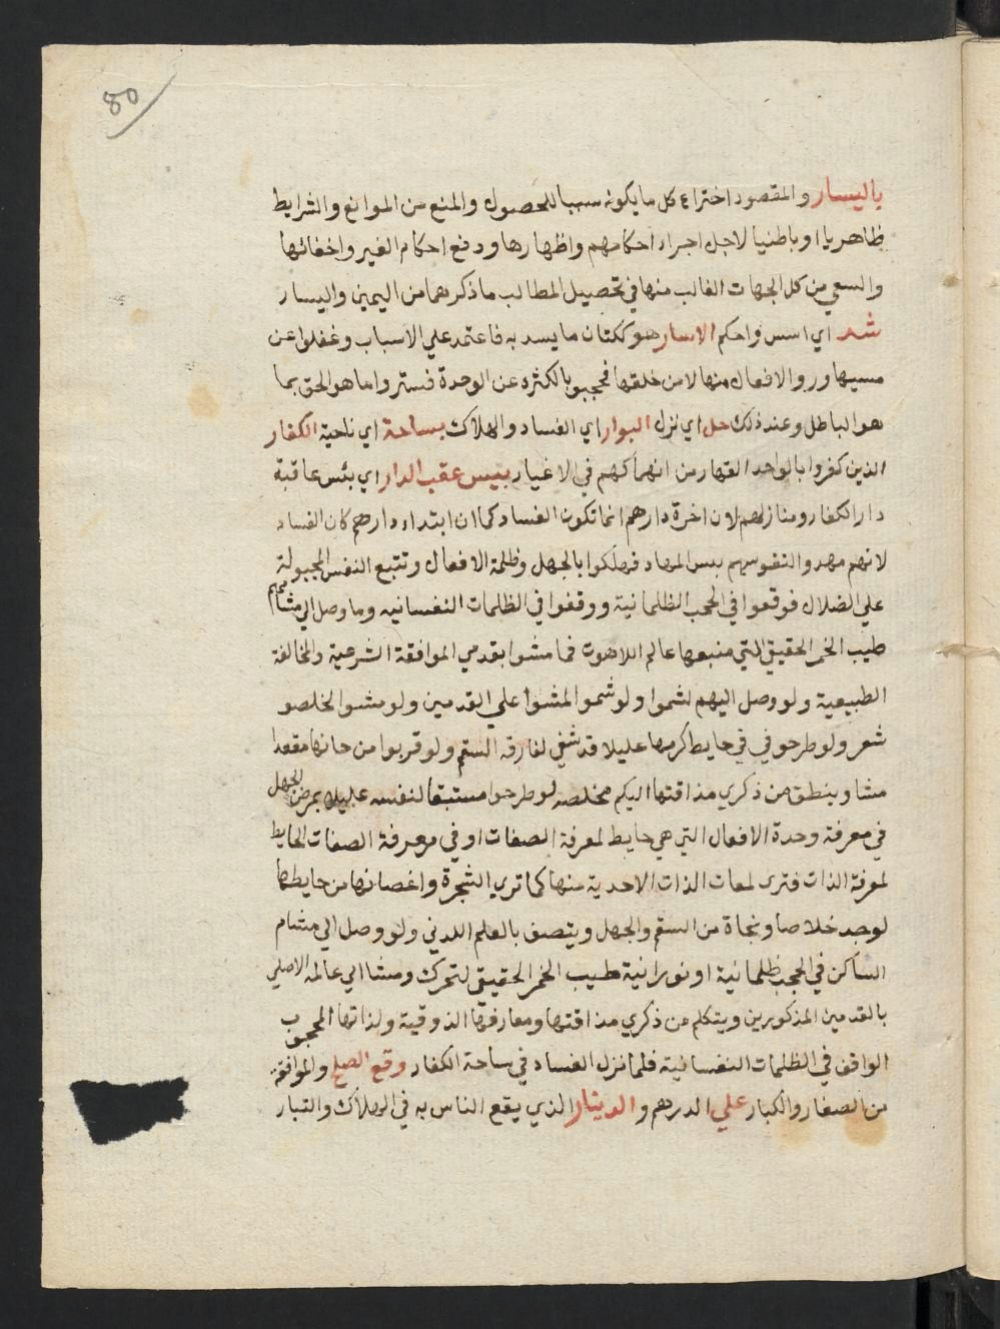 80
باليسار والمقصود اختراع كل ما يكون سببا للحصول والمنع من الموانع والشرايط
ظاهريا او باطنيا لاجل اجراء احكامهم واظهارها ودفع احكام الغير واخفائها
والسعي من كل الجهات الغالب منها في تحصيل المطالب ما ذكرهما من اليمين واليسار
شد اي اسس واحكم الاسار هو ككتان ما يسد به فاعتمد علي الاسباب وغفلوا عن
مسببها وروا الافعال منها لا من خلقها فحجبو بالكثره عن الوحدة فستروا ما هو الحق بما
هو الباطل وعند ذلك حل اي نزل البوار اي الفساد والهلاك بساحة اي ناحية الكفار
الذين كفروا بالواحد القهار من انهماكهم في الاغيار بيس عقب الدار اي بئس عاقبة
دار الكفار ومنازلهم لان اخرة دارهم انما تكون الفساد كما ان ابتداء دارهم كان الفساد
لانهم مهدوا لنفوسهم بيس المهاد فهلكوا بالجهل وظلمة الافعال وتتبع النفس المجبولة
علي الضلال فوقعوا في الحجب الظلمانية ووقفوا في الظلمات النفسانيه وما وصل الي مشامهم
طيب الخمر الحقيقي التي منبعها عالم اللاهوت فما مشوا بقدمي الموافقة الشرعية والمخالفة
الطبيعية ولو وصل اليهم لشموا ولو شموا لمشوا علي القدمين ولو مشوا لخلصو
شعر ولو طرحو في في حايط كرمها عليلا قد شفي لفارقه السقم ولو قربوا من حانها مقعدا
مشا وينطق من ذكري مذاقتها اليكم مخلصه لو طرحوا لنفسه عليلا بمرض الجهل
في معرفة وحدة الافعال التي هي حايط لمعرفة الصفات او في معرفة الصفات الحايط
لمعرفة الذات فتري لمعات الذات الاحدية منها كما تري الشجرة واغصانها من حايطها
لوجد خلاصا ونجاة من السقم والجهل ويتصف بالعلم اللدني ولو وصل الي مشام
الساكن في الحجب ظلمانية او نورانية طيب الخمر الحقيقي لتحرك ومشا الي عالمه الاصلي
بالقدمين المذكورين ويتكلم من ذكري مذاقتها ومعارفها الذوقية ولذاتها المحجوب
الواقف في الظلمات النفسانية فلما نزل الفساد في ساحة الكفار وقع الصلح والموافقة
من الصغار والكبار علي الدرهم والدينار الذي يقع الناس به في الهلاك والتبار